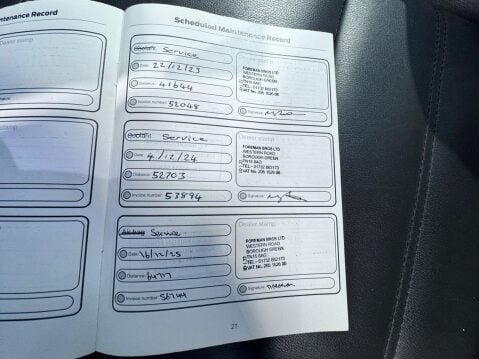 ntenance Record
Scheduled Maintenance Record
Dealer stamp
Signature
Service
Date: 22/12/23
Distance: 41644
Invoice number: 52048
FOREMAN BROS LTD
WESTERN ROAD
BOROUGH GREEN
TN15 8AG
TEL - 01732
VAT No.
Signature:
Service
Date: 4/12/24
Distance: 52703
Invoice number: 53894
Dealer stamp
FOREMAN BROS LTD
WESTERN ROAD
BOROUGH GREEN
TN15 8AG
TEL - 01732
VAT No.
Signature:
Service
Date: 16/12/25
Distance:
Invoice number:
Dealer stamp
FOREMAN BROS LTD
WESTERN ROAD
BOROUGH GREEN
TN15 8AG
TEL - 01732
VAT No.
Signature:
27